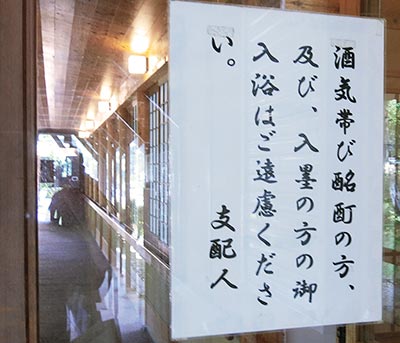 酒気帯び酩酊の方、
及び、入墨の方の御
入浴はご遠慮くださ
い。
支配人